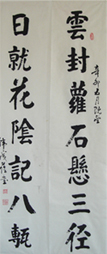 雲封蘿石懸三径
日就花陰記八甎